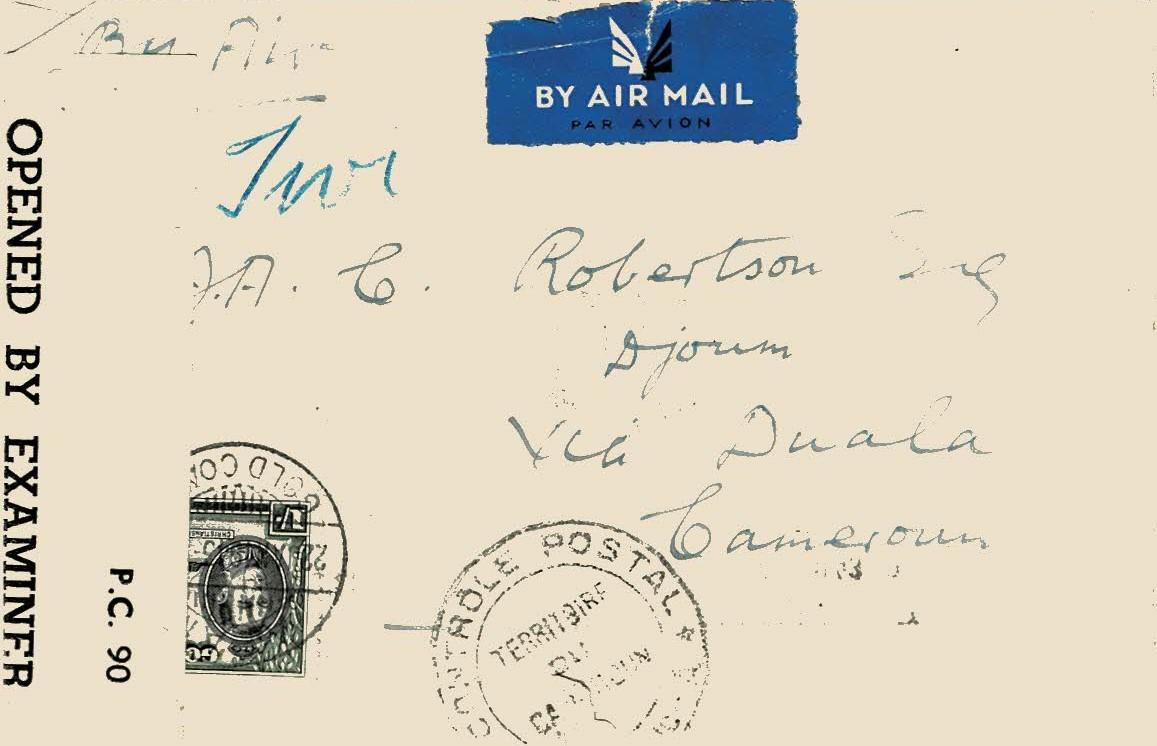 By Air
BY AIR MAIL
PAR AVION
OPENED BY EXAMINER
P.C. 90
J.A. C. Robertson Esq
Djoum
Via Duala
Cameroun
GOLD COA
CHRISTIANS
1/-
CONTRÔLE POSTAL *
TERRITOIRE
DU
CAMEROUN